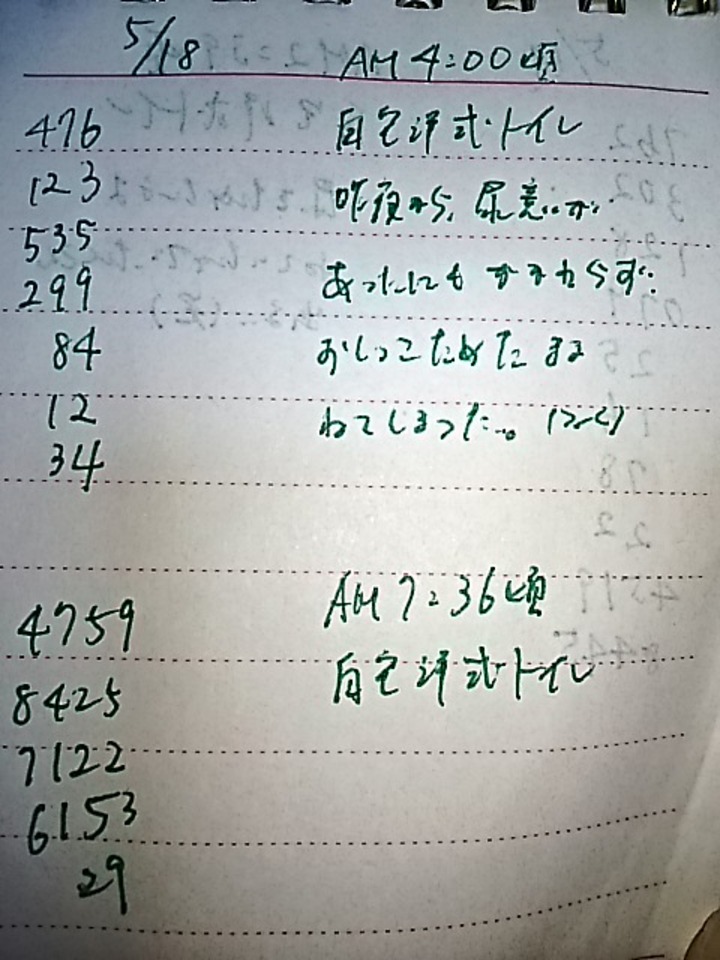 5/18 AM 4:00頃
476 自宅洋式トイレ
123 昨夜から、尿意が
535
299 あったにもかかわらず、
84 おしっこためたまま
12 ねてしまった…。(>_<)
34
AM 7:36頃
4759
自宅洋式トイレ
8425
7122
6153
29